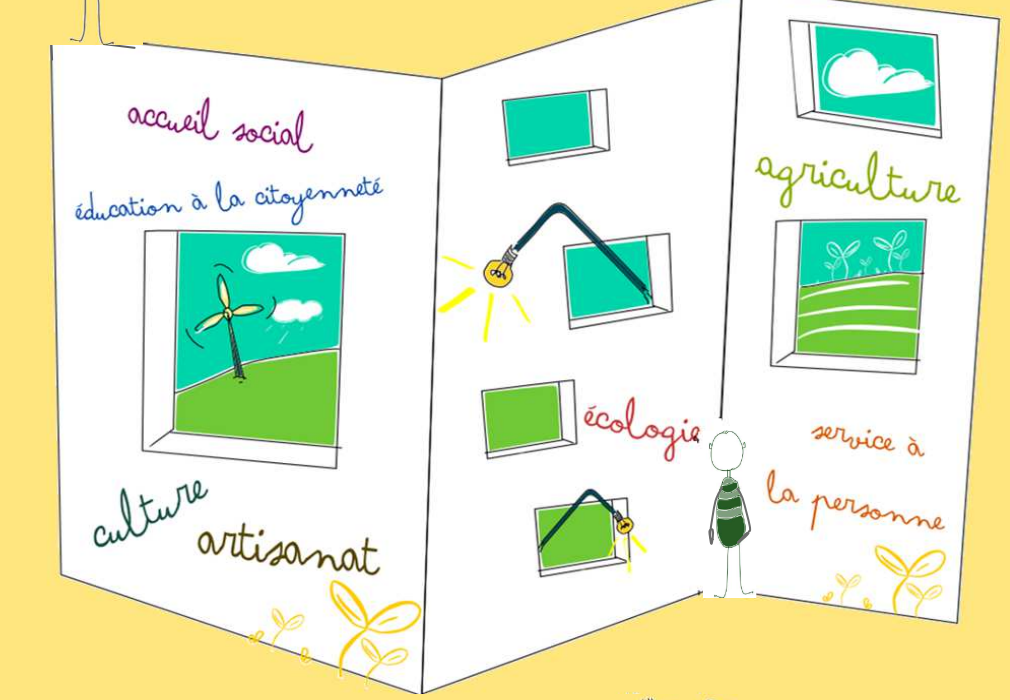 accueil social
éducation à la citoyenneté
culture
artisanat
écologie
agriculture
service à
la personne